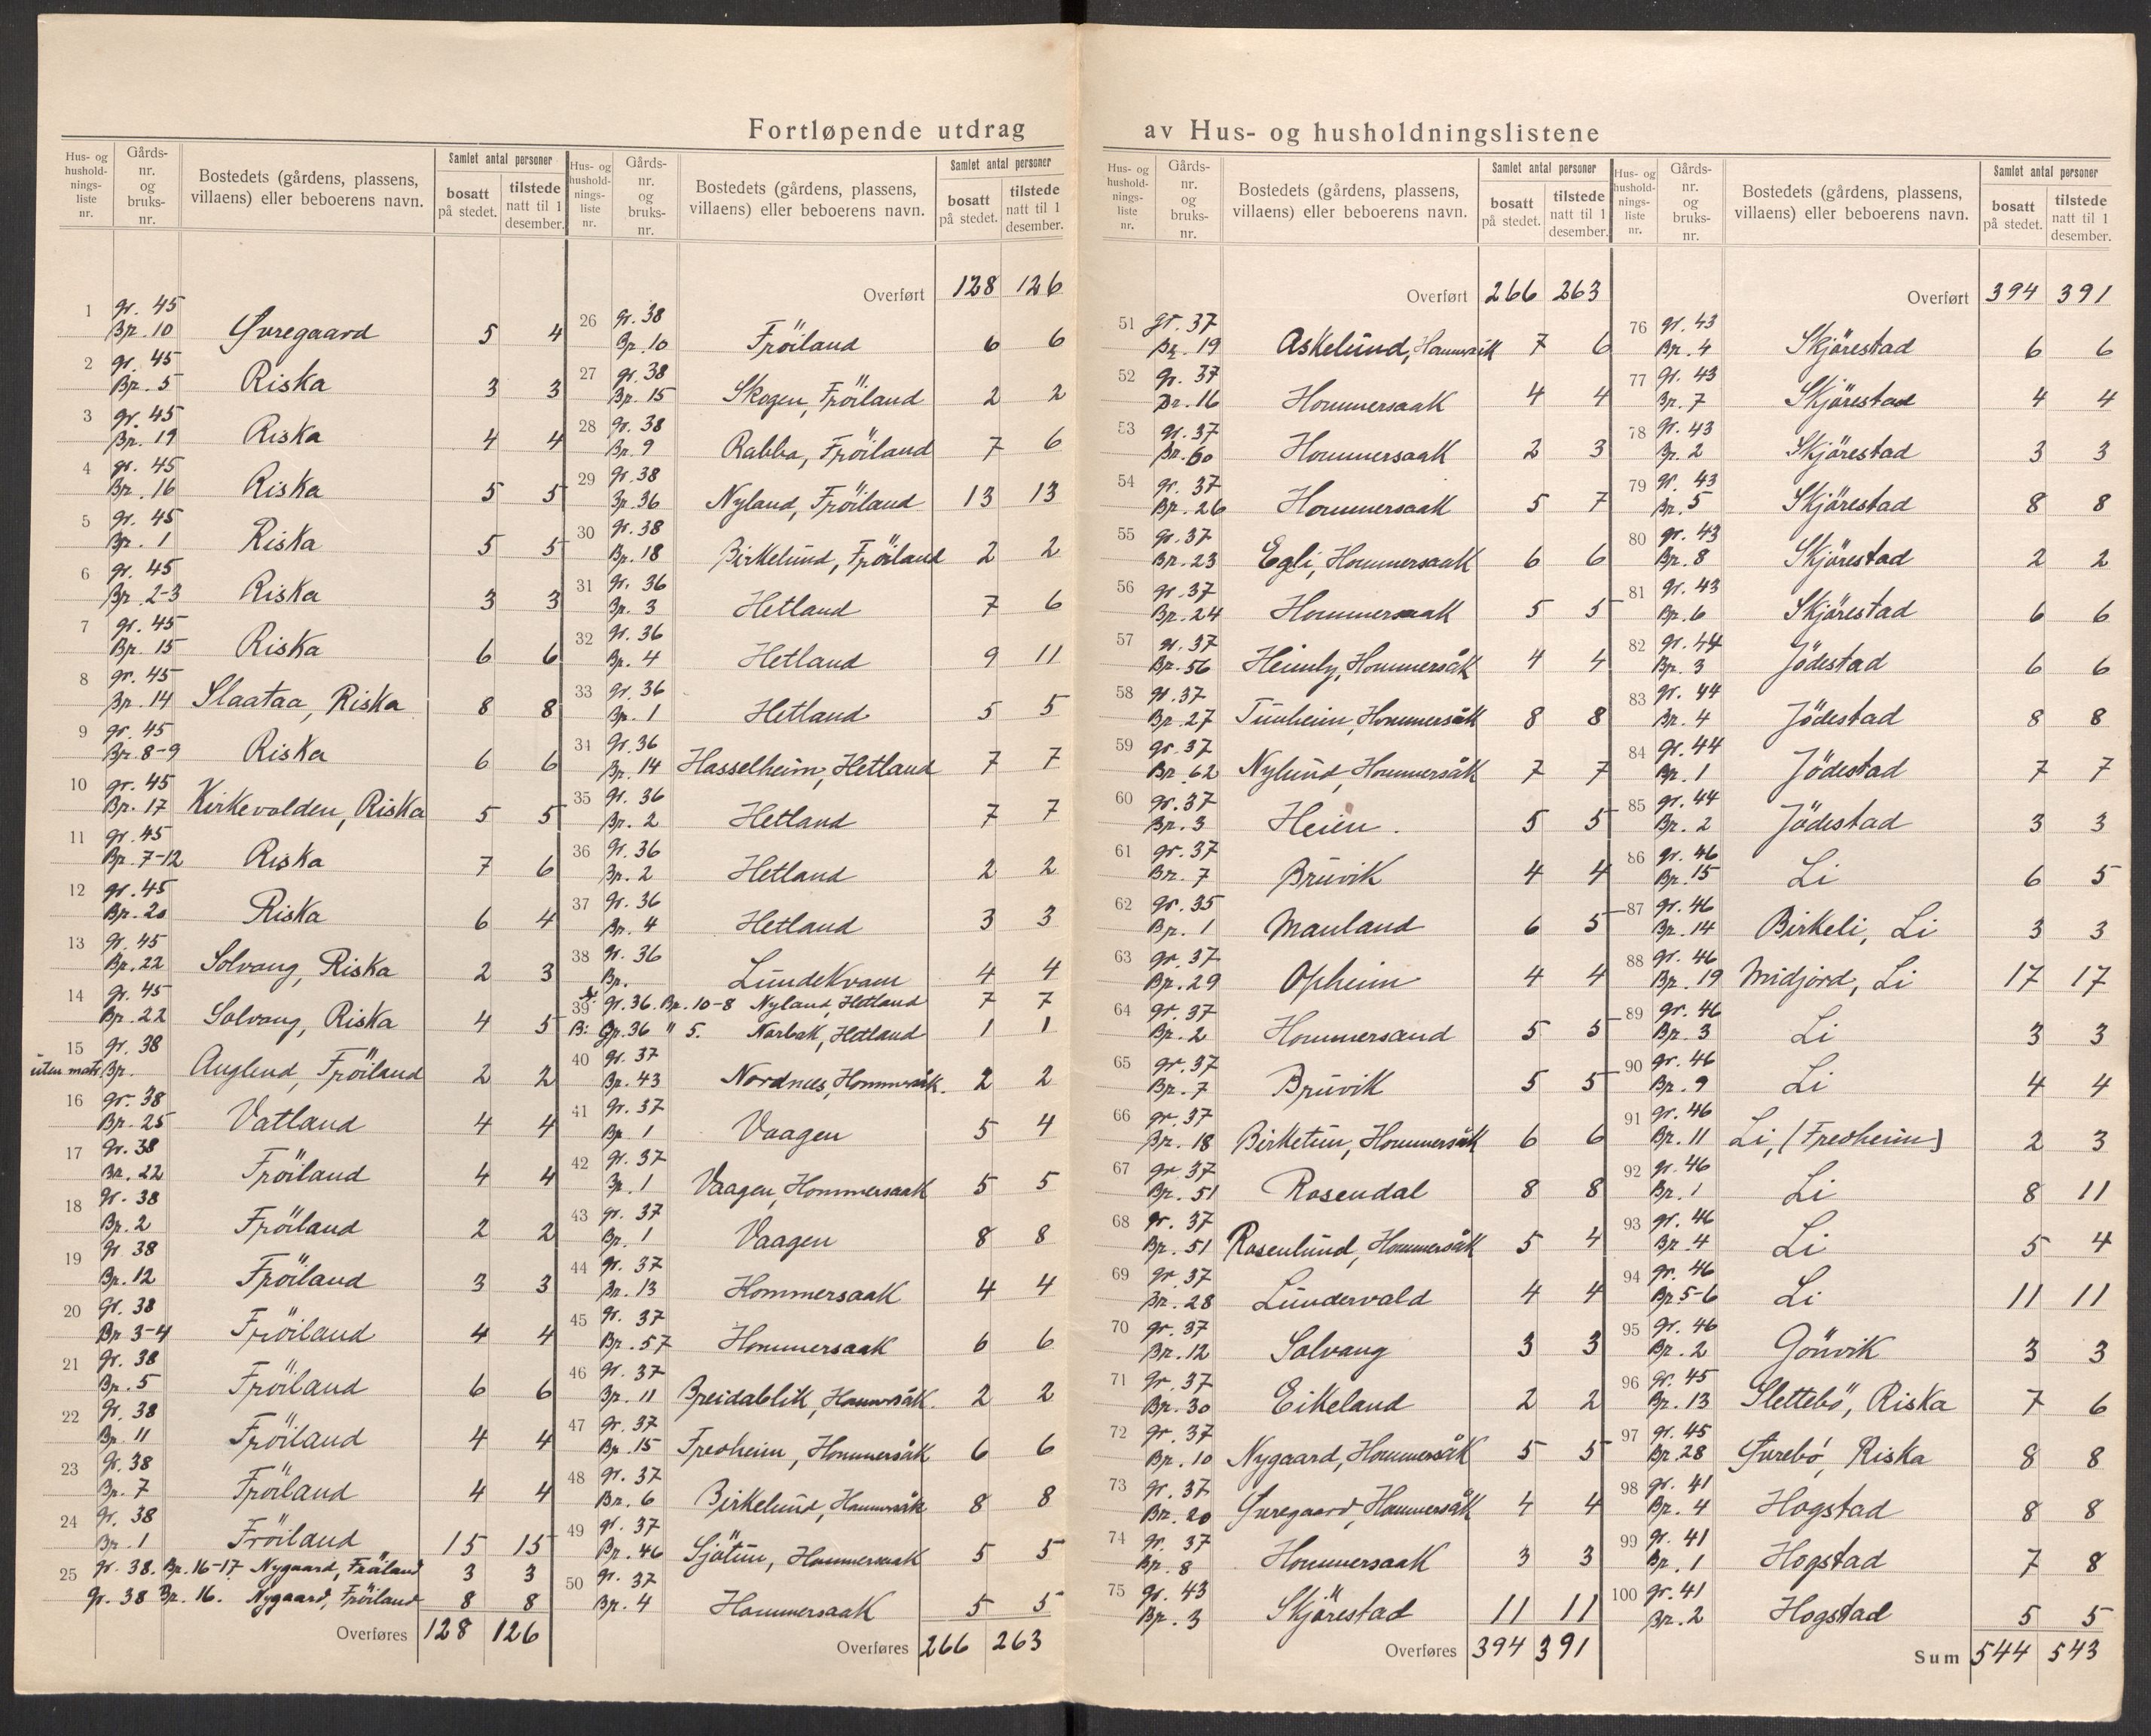 Fortløpende utdrag av Hus- og husholdningslistene
Hus- og husholdningsliste nr. | Gårdsnr. og bruksnr. | Bostedets (gårdens, plassens, villaens) eller beboerens navn. | Samlet antal personer | bosatt på stedet. | tilstede natt til 1 desember.
1 gr. 45 Br. 10 Øvregaard 5 4
2 gr. 45 Br. 5 Riska 3 3
3 gr. 45 Br. 19 Riska 4 4
4 gr. 45 Br. 16 Riska 5 5
5 gr. 45 Br. 1 Riska 5 5
6 gr. 45 Br. 2-3 Riska 3 3
7 gr. 45 Br. 15 Riska 6 6
8 gr. 45 Br. 14 Slaataa, Riska 8 8
9 gr. 45 Br. 8-9 Riska 6 6
10 gr. 45 Br. 17 Kirkevolden, Riska 5 5
11 gr. 45 Br. 7-12 Riska 7 6
12 gr. 45 Br. 20 Riska 6 4
13 gr. 45 Br. 22 Solvang, Riska 2 3
14 gr. 45 Br. 22 Solvang, Riska 4 5
15 gr. 38 uten matr. Br. Auglend, Fröiland 2 2
16 gr. 38 Br. 25 Vatland 4 4
17 gr. 38 Br. 22 Fröiland 4 4
18 gr. 38 Br. 2 Fröiland 2 2
19 gr. 38 Br. 12 Fröiland 3 3
20 gr. 38 Br. 3-4 Fröiland 4 4
21 gr. 38 Br. 5 Fröiland 6 6
22 gr. 38 Br. 11 Fröiland 4 4
23 gr. 38 Br. 7 Fröiland 4 4
24 gr. 38 Br. 1 Fröiland 15 15
25 gr. 38. Br. 16-17 Nygaard, Fröiland 3 3
gr. 38 Br. 16. Nygaard, Fröiland 8 8
Overføres 128 126
Hus- og husholdningsliste nr. | Gårdsnr. og bruksnr. | Bostedets (gårdens, plassens, villaens) eller beboerens navn. | Samlet antal personer | bosatt på stedet. | tilstede natt til 1 desember.
Overført 128 126
26 gr. 38 Br. 10 Fröiland 6 6
27 gr. 38 Br. 15 Skogen, Fröiland 2 2
28 gr. 38 Br. 9 Rabba, Fröiland 7 6
29 gr. 38 Br. 36 Nyland, Fröiland 13 13
30 gr. 38 Br. 18 Birkelund, Fröiland 2 2
31 gr. 36 Br. 3 Hetland 7 6
32 gr. 36 Br. 4 Hetland 9 11
33 gr. 36 Br. 1 Hetland 5 5
34 gr. 36 Br. 14 Hasselheim, Hetland 7 7
35 gr. 36 Br. 2 Hetland 7 7
36 gr. 36 Br. 2 Hetland 2 2
37 gr. 36 Br. 4 Hetland 3 3
38 gr. 36 Br. Lundekvam 4 4
39 gr. 36. Br. 10-8 Nyland, Hetland 7 7
B: Gr. 36 " 5. Norbak, Hetland 1 1
40 gr. 37 Br. 43 Nordnes, Hommersåk. 2 2
41 gr. 37 Br. 1 Vaagen 5 4
42 gr. 37 Br. 1 Vaagen, Hommersaak 5 5
43 gr. 37 Br. 1 Vaagen 8 8
44 gr. 37 Br. 13 Hommersaak 4 4
45 gr. 37 Br. 57 Hommersaak 6 6
46 gr. 37 Br. 11 Breidablik, Hommersåk. 2 2
47 gr. 37 Br. 15 Fredheim, Hommersåk 6 6
48 gr. 37 Br. 6 Birkelund, Hommersåk 8 8
49 gr. 37 Br. 46 Sjötun, Hommersaak 5 5
50 gr. 37 Br. 4 Hommersaak 5 5
Overføres 266 263
Hus- og husholdningsliste nr. | Gårdsnr. og bruksnr. | Bostedets (gårdens, plassens, villaens) eller beboerens navn. | Samlet antal personer | bosatt på stedet. | tilstede natt til 1 desember.
Overført 266 263
51 gr. 37 Br. 19 Askelund, Hommersåk 7 6
52 gr. 37 Br. 16 Hommersaak 4 4
53 gr. 37 Br. 60 Hommersaak 2 3
54 gr. 37 Br. 26 Hommersaak 5 7
55 gr. 37 Br. 23 Egli, Hommersaak 6 6
56 gr. 37 Br. 24 Hommersaak 5 5
57 gr. 37 Br. 56 Heimly, Hommersåk 4 4
58 gr. 37 Br. 27 Tunheim, Hommersåk 8 8
59 gr. 37 Br. 62 Nylund, Hommersåk 7 7
60 gr. 37 Br. 3 Heien. 5 5
61 gr. 37 Br. 7 Bruvik 4 4
62 gr. 35 Br. 1 Mauland 6 5
63 gr. 37 Br. 29 Opheim 4 4
64 gr. 37 Br. 2 Hommersand 5 5
65 gr. 37 Br. 7 Bruvik 5 5
66 gr. 37 Br. 18 Birketun, Hommersåk 6 6
67 gr. 37 Br. 51 Rosendal 8 8
68 gr. 37 Br. 51 Rosenlund, Hommersåk 5 4
69 gr. 37 Br. 28 Lundervald 4 4
70 gr. 37 Br. 12 Solvang 3 3
71 gr. 37 Br. 30 Eikeland 2 2
72 gr. 37 Br. 10 Nygaard, Hommersåk 5 5
73 gr. 37 Br. 20 Øvregaard, Hommersåk 4 4
74 gr. 37 Br. 8 Hommersaak 3 3
75 gr. 43 Br. 3 Skjörestad 11 11
Overføres 394 391
Hus- og husholdningsliste nr. | Gårdsnr. og bruksnr. | Bostedets (gårdens, plassens, villaens) eller beboerens navn. | Samlet antal personer | bosatt på stedet. | tilstede natt til 1 desember.
Overført 394 391
76 gr. 43 Br. 4 Skjörestad 6 6
77 gr. 43 Br. 7 Skjörestad 4 4
78 gr. 43 Br. 2 Skjörestad 3 3
79 gr. 43 Br. 5 Skjörestad 8 8
80 gr. 43 Br. 8 Skjörestad 2 2
81 gr. 43 Br. 6 Skjörestad 6 6
82 gr. 44 Br. 3 Jödestad 6 6
83 gr. 44 Br. 4 Jödestad 8 8
84 gr. 44 Br. 1 Jödestad 7 7
85 gr. 44 Br. 2 Jödestad 3 3
86 gr. 46 Br. 15 Li 6 5
87 gr. 46 Br. 14 Birkeli, Li 3 3
88 gr. 46 Br. 19 Midjord, Li 17 17
89 gr. 46 Br. 3 Li 3 3
90 gr. 46 Br. 9 Li 4 4
91 gr. 46 Br. 11 Li, (Fredheim) 2 3
92 gr. 46 Br. 1 Li 8 11
93 gr. 46 Br. 4 Li 5 4
94 gr. 46 Br. 5-6 Li 11 11
95 gr. 46 Br. 2 Gönvik 3 3
96 gr. 45 Br. 13 Slettebö, Riska 7 6
97 gr. 45 Br. 28 Øvrebö, Riska 8 8
98 gr. 41 Br. 4 Hogstad 8 8
99 gr. 41 Br. 1 Hogstad 7 8
100 gr. 41 Br. 2 Hogstad 5 5
Sum 544 543